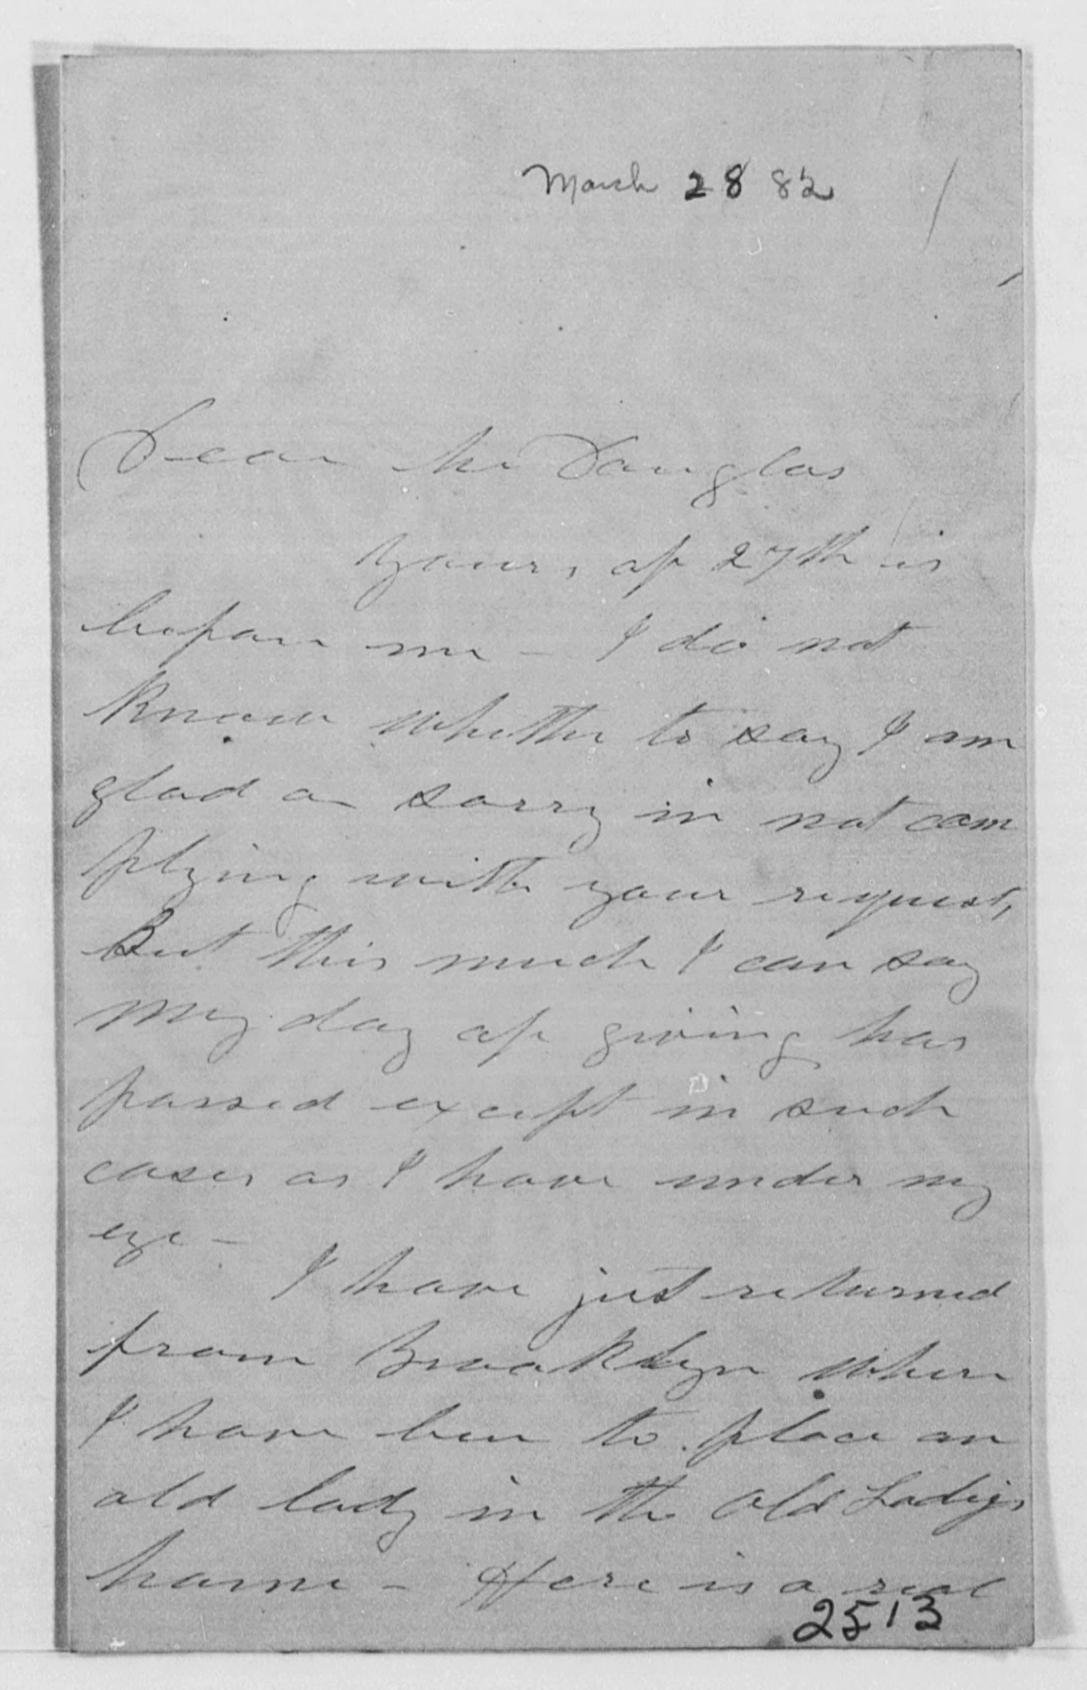 March 28 82
Dear Mr Douglas
Yours, of 27th is
before me - I do not
know whether to say I am
glad or sorry in not com
plying with your request,
But this much I can say
my day of giving has
passed except in such
cases as I have under my
eye -
I have just returned
from Brooklyn where
I have been to place an
old lady in the Old Ladys
home - Here is a real
2513